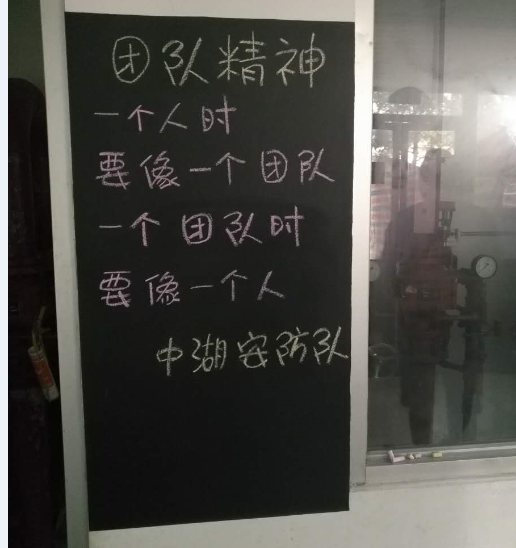 团队精神
一个人时
要像一个团队
一个团队时
要像一个人
中湖安防队